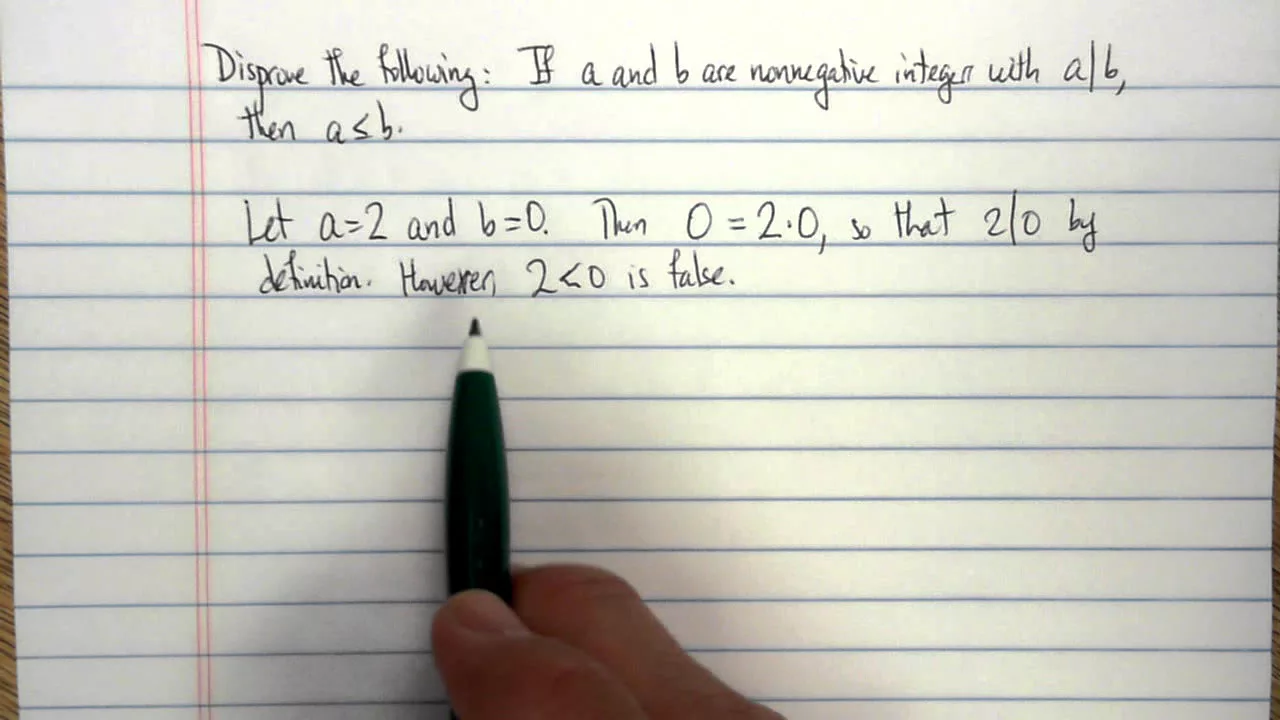 Disprove the following: If a and b are nonnegative integers with a|b,
then a ≤ b.
Let a=2 and b=0. Then 0 = 2·0, so that 2|0 by
definition. However, 2<0 is false.